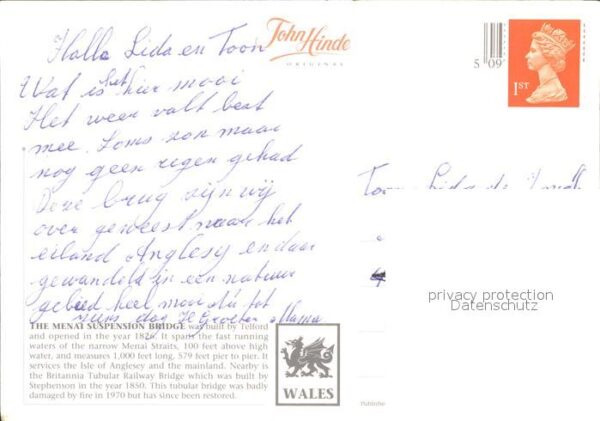 John Hinde
ORIGINAL
5 09
1ST
Hallo Lida en Toon
Wat is het hier mooi
Het weer valt best
mee. Soms zon maar
nog geen regen gehad
Deze brug zijn wij
over geweest naar het
eiland Anglesy en daar
gewandeld in een natuur
gebied heel mooi
dag Groetjes Mama
Toon Lida de
privacy protection
Datenschutz
THE MENAI SUSPENSION BRIDGE was built by Telford
and opened in the year 1826. It spans the fast running
waters of the narrow Menai Straits, 100 feet above high
water, and measures 1,000 feet long, 579 feet pier to pier. It
services the Isle of Anglesey and the mainland. Nearby is
the Britannia Tubular Railway Bridge which was built by
Stephenson in the year 1850. This tubular bridge was badly
damaged by fire in 1970 but has since been restored.
WALES